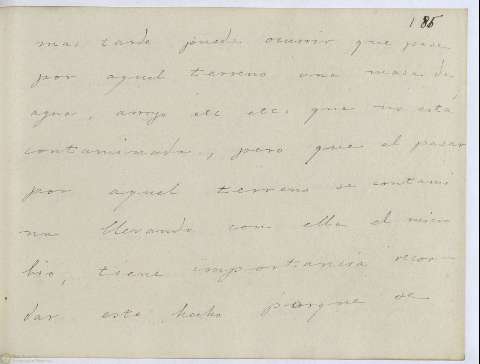 185
mas tarde puede ocurrir que pase
por aquel terreno una masa de
agua, arroyo etc etc. que no está
contaminada, pero que al pasar
por aquel terreno se contami
na llevando con ella el micro
bio, tiene importancia recor-
dar este hecho porque se